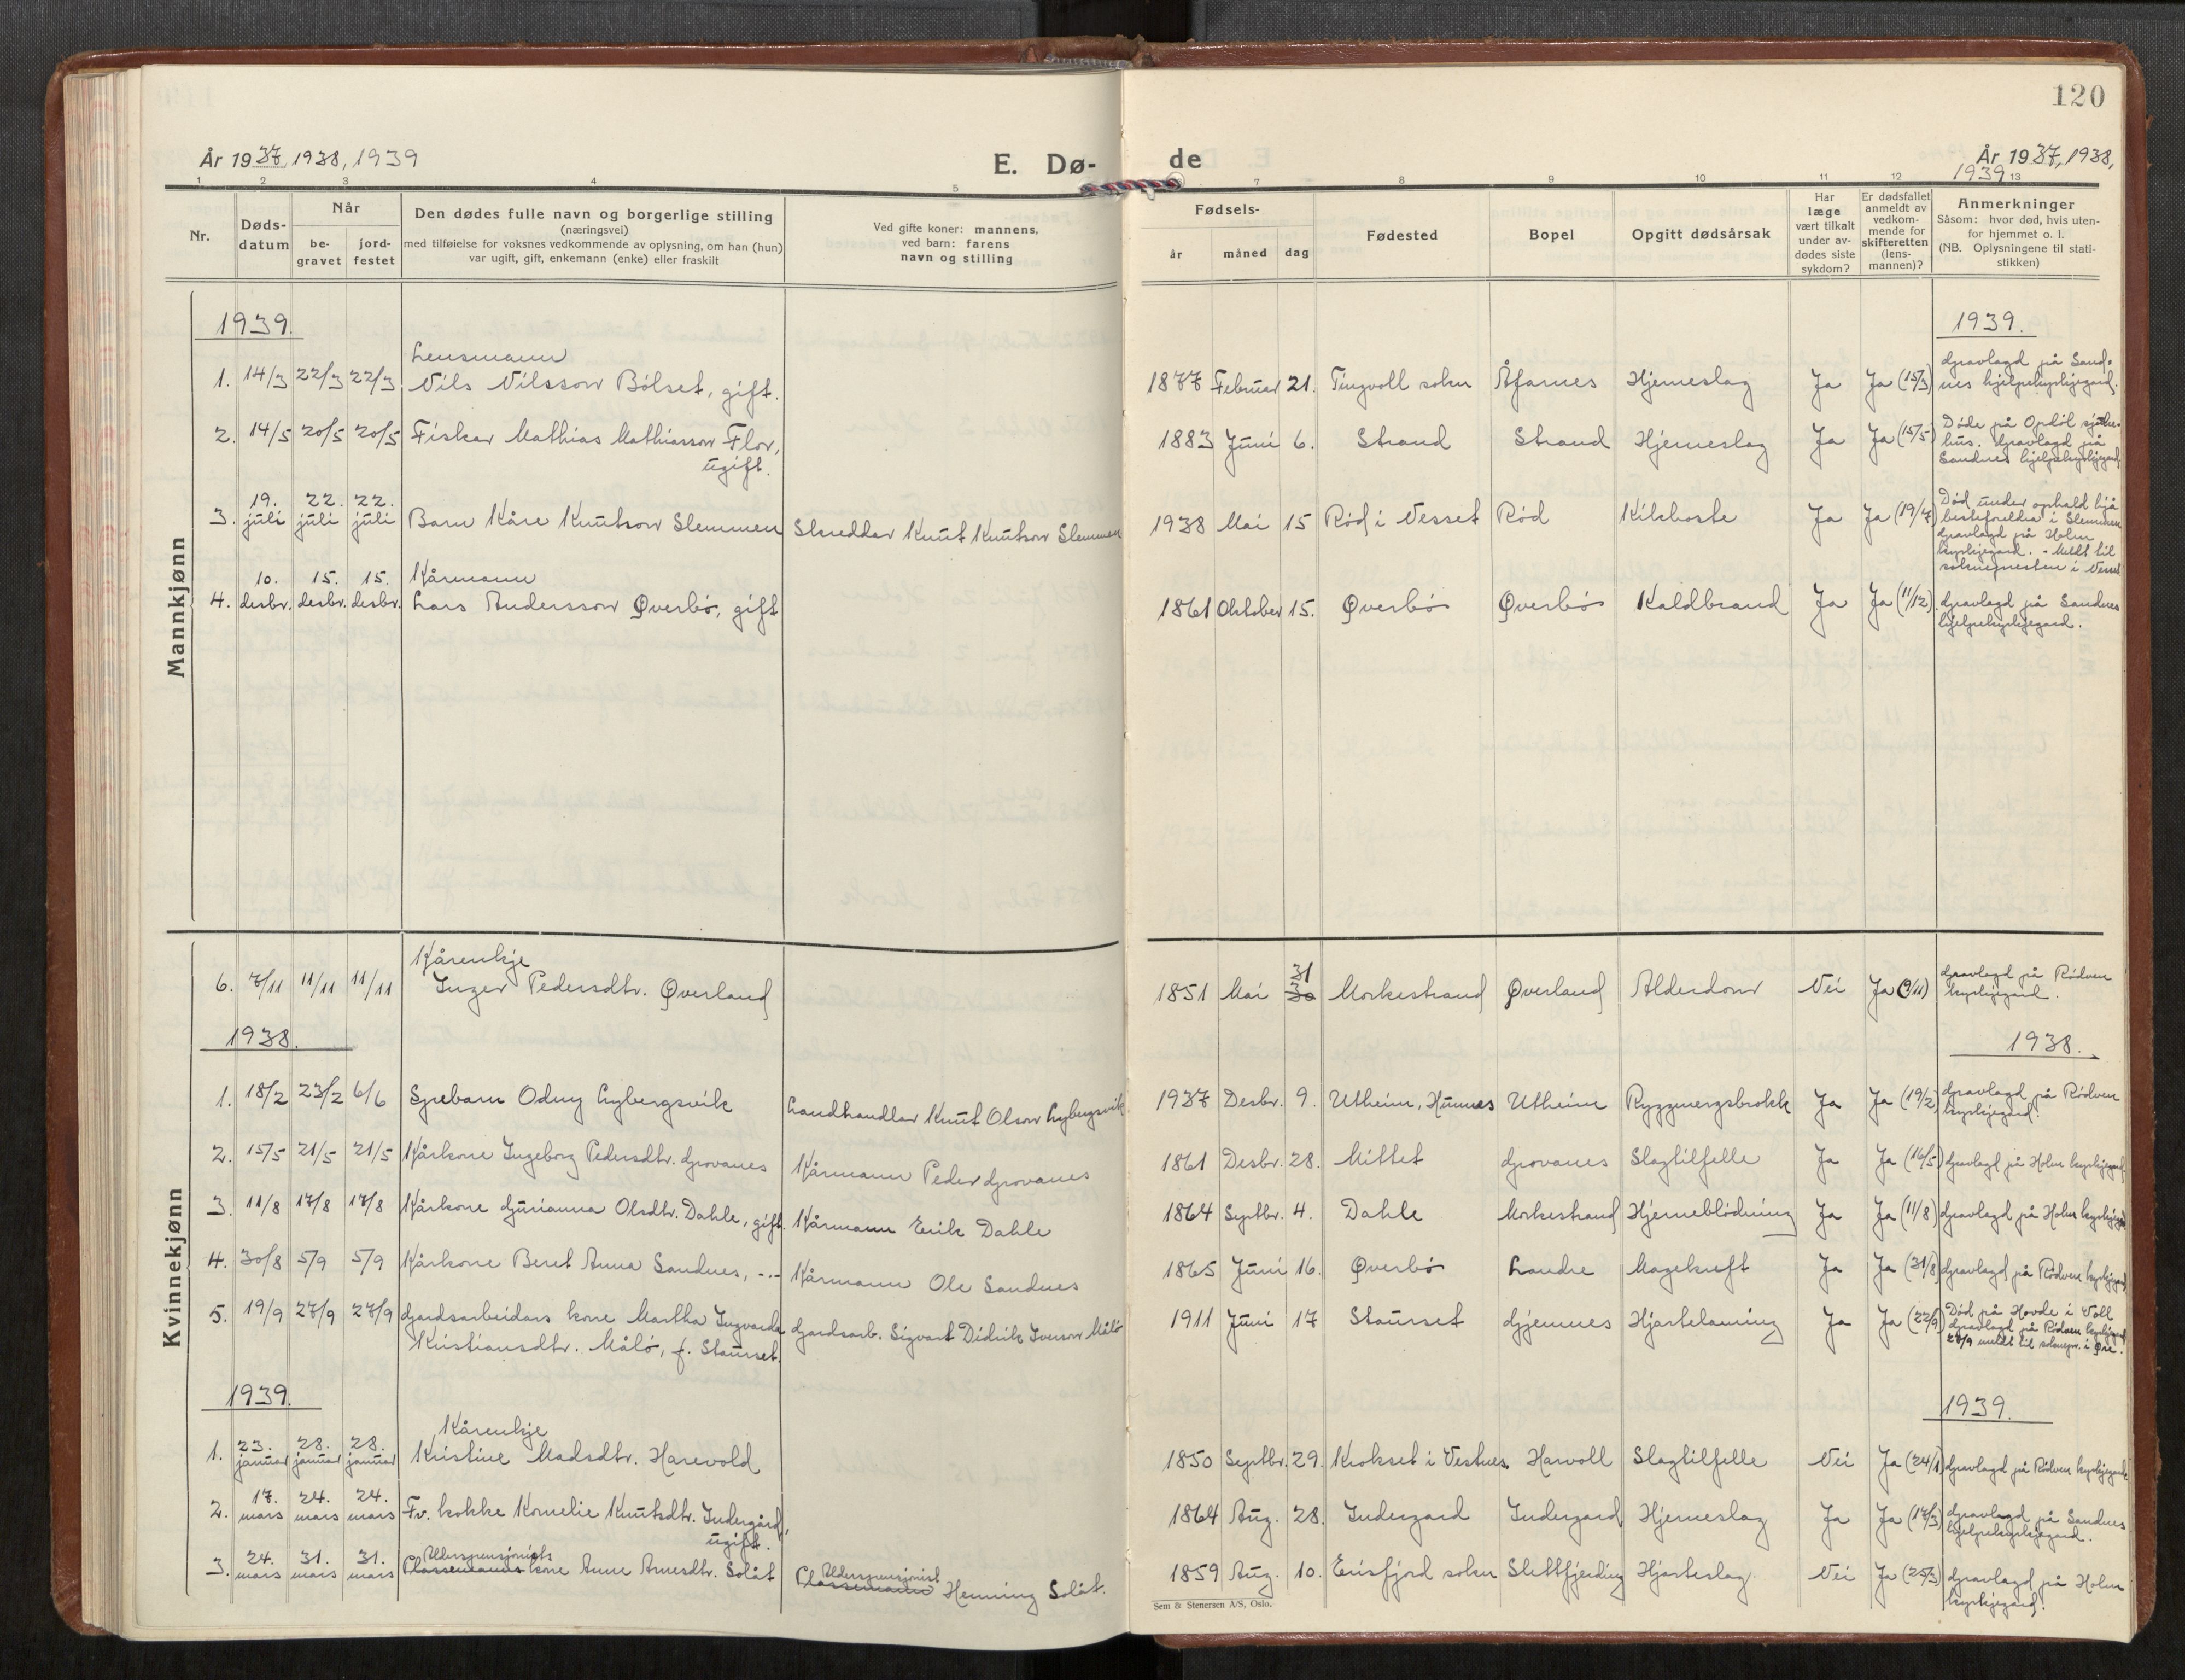 120
År 1937, 1938, 1939
E. Dø-
de
År 1937, 1938,
1939
1 2 3 4 5 7 8 9 10 11 12 13
Nr.
Døds-
datum
Når
be-
gravet
jord-
festet
Den dødes fulle navn og borgerlige stilling
(næringsvei)
med tilføielse for voksnes vedkommende av oplysning, om han (hun)
var ugift, gift, enkemann (enke) eller fraskilt
Ved gifte koner: mannens,
ved barn: farens
navn og stilling
Fødsels-
år
måned
dag
Fødested
Bopel
Opgitt dødsårsak
Har
læge
vært tilkalt
under av-
dødes siste
sykdom?
Er dødsfallet
anmeldt av
vedkom-
mende for
skifteretten
(lens-
mannen)?
Anmerkninger
Såsom: hvor død, hvis uten-
for hjemmet o. l.
(NB. Oplysningene til stati-
stikken)
Mannkjønn
1939.
1939.
Lensmann
1. 14/3 22/3 22/3 Nils Nilsson Bólset, gift. 1877 Februar 21. Tingvoll sokn Åfarnes Hjerneslag Ja Ja (15/3) Gravlagd på Sand-
nes hjelpekyrkjegard.
2. 14/5 20/5 20/5 Fiskar Mathias Mathiasson Flor,
ugift. 1883 Juni 6. Strand Strand Hjerneslag Ja Ja (15/5) Døde på Opdöl sjuke-
hus. Gravlagd på
Sandnes hjelpekyrkjegard
3. 19. juli 22. juli 22. juli Barn Kåre Knutson Slemmen Skreddar Knut Knutson Slemmen 1938 Mai 15 Rød i Nesset Rød Kikhoste Ja Ja (19/7) Død under ophald hjå
besteforeldra i Slemmen
Gravlagd på Holm
kyrkjegard. - Meldt til
soknepresten i Nesset
Kårmann
4. 10. desbr. 15. desbr. 15. desbr. Lars Andersson Øverbó, gift 1861 Oktober 15. Øverbó Øverbó Kaldbrand Ja Ja (11/12) Gravlagd på Sandnes
hjelpekyrkjegard.
Kvinnekjønn
Kårenkje
6. 7/11 11/11 11/11 Inger Pedersdtr. Øverland 1851 Mai 31 30 Morkestrand Øverland Alderdom Nei Ja Gravlagd på Rødven
kyrkjegard.
1938.
1938.
1. 18/2 23/2 6/6 Spebarn Odny Lybergsvik Landhandlar Knut Olson Lybergsvik 1937 Desbr. 9. Utheim, Humnes Utheim Ryggmergsbrokk Ja Ja (19/2) Gravlagd på Rødven
kyrkjegard.
2. 15/5 21/5 21/5 Kårkone Ingeborg Pedersdtr. Grovanes Kårmann Peder Grovanes 1861 Desbr. 28. Mittet Grovanes Slagtilfelle Ja Ja (16/5) Gravlagd på Holm kyrkjegard
3. 11/8 17/8 17/8 Kårkone Gurianna Olsdtr. Dahle, gift Kårmann Erik Dahle 1864 Septbr. 4. Dahle Morkestrand Hjerneblödning Ja Ja (11/8) Gravlagd på Holm kyrkjegard
4. 30/8 5/9 5/9 Kårkone Beret Anna Sandnes, -.- Kårmann Ole Sandnes 1865 Juni 16. Øverbó Landre Magekreft Ja Ja (31/8) Gravlagd på Rødven kyrkjegard
5. 19/9 27/9 27/9 Gardsarbeidars kone Martha Ingvarda
Kristiansdtr. Måló, f. Staurset. Gardsarb. Sigvart Didrik Iverson Måló 1911 Juni 17 Staurset Gjemnes Hjartelaming Ja Ja (22/9) Død på Hovde i Voll
Gravlagd på Rødven kyrkjegard
27/9 meldt til soknepr. i Øre.
1939.
1939.
Kårenkje
1. 23. januar 28. januar 28. januar Kristine Madsdtr. Harevold 1850 Septbr. 29. Krokset i Vestnes Harvoll Slagtilfelle Nei Ja (24/1) Gravlagd på Rødven kyrkjegard
2. 17. mars 24. mars 24. mars Fv. kokke Kornelie Knutsdtr. Indergård,
ugift. 1864 Aug. 28. Indergard Indergard Hjerneslag Ja Ja (17/3) Gravlagd på Sandnes
hjelpekyrkjegard.
Alderspensjonists Alderspensjonist
3. 24. mars 31. mars 31. mars Plassemanns kone Anne Arnesdtr. Solåt Plassemann Henning Solåt. 1859 Aug. 10. Eirisfjord sokn Slettfjerding Hjarteslag Nei Ja (25/3) Gravlagd på Holm
kyrkjegard.
Sem & Stenersen A/S, Oslo.